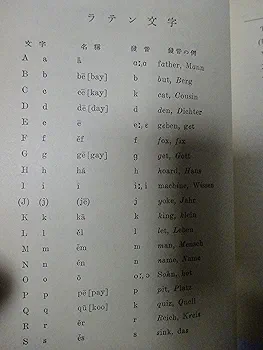 ラテン文字
文字 名稱 發音 發音の例
A a ā ɑː, ɑ father, Mann
B b bē [bay] b but, Berg
C c cē [kay] k cat, Cousin
D d dē [day] d den, Dichter
E e ē eː, ɛ geben, get
F f ĕf f fox, fix
G g gē [gay] g get, Gott
H h hā h hoard, Hans
I i ī iː, i machine, Wesen
(J) (j) (jē) j yoke, Jahr
K k kā k king, klein
L l ĕl l let, Leben
M m ĕm m man, Mensch
N n ĕn n name, Name
O o ō oː, ɔ Sohn, het
P p pē [pay] p pit, Platz
Q q qū [koo] k quiz, Quell
R r ĕr r Reich, Kreis
S s ĕs s sink, das